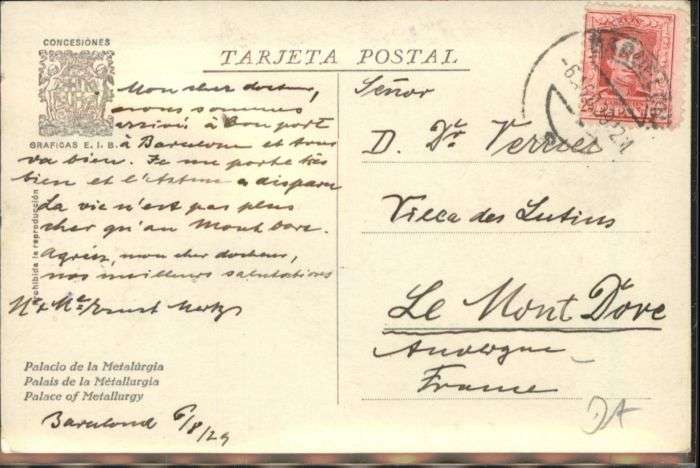 CONCESIONES
GRAFICAS E. I. B.
TARJETA POSTAL
Mon cher docteur,
nous sommes
arrivés à bon port
à Barcelone et tous
va bien. Je me porte très
bien et l'Astme a disparu
La vie n'est pas plus
cher qu'au Mont Dore.
Agréez, mon cher docteur,
nos meilleurs salutations
Mr & Me Ernest Mertz
ohibida la reproducción
Palacio de la Metalúrgia
Palais de la Métallurgia
Palace of Metallurgy
Barcelona 6/8/29
Señor
D. Dr. Verrier
Villa des Lutins
Le Mont Dore
Auvergne
France